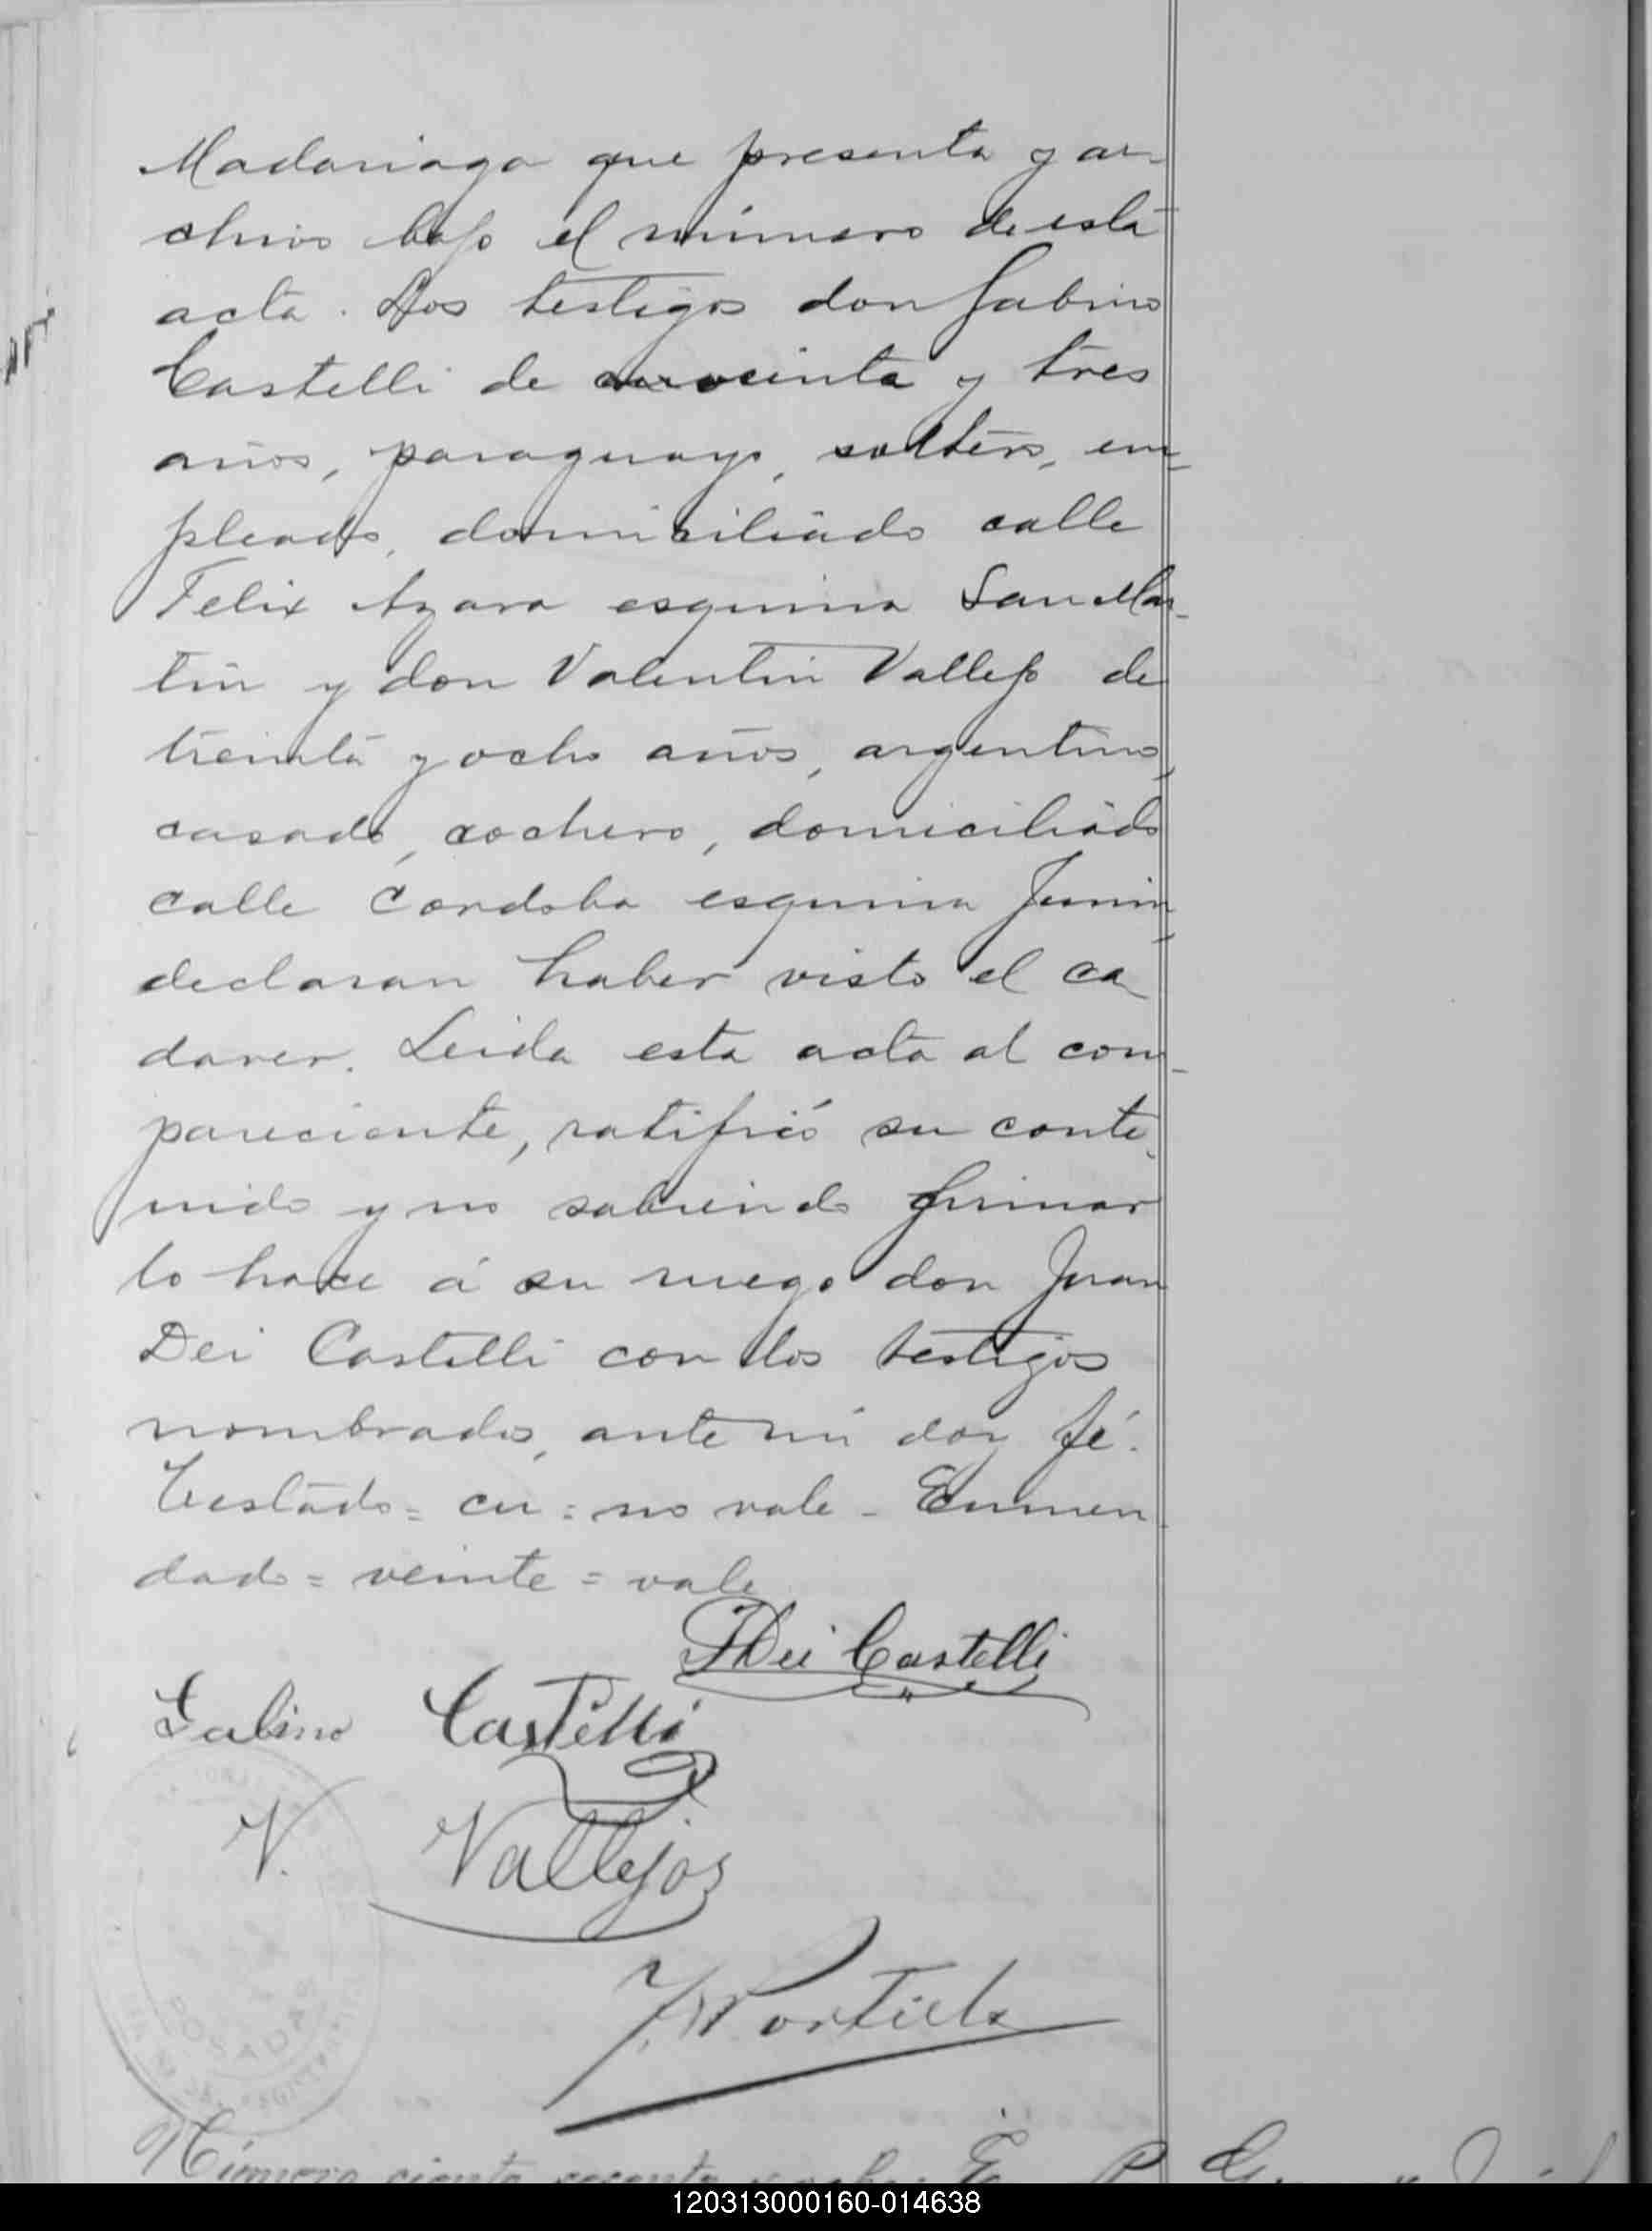 Madariaga que presenta y ar-
chivo bajo el número de esta
acta. Los testigos don Gabino
Castelli de cuveinte y tres
años, paraguayo, soltero, em-
pleado, domiciliado calle
Felix Azara esquina San Mar-
tin y don Valentin Vallejo de
treinta y ocho años, argentino,
casado, cochero, domiciliado
calle Cordoba esquina Junin,
declaran haber visto el ca-
daver. Leida esta acta al com-
pareciente, ratificó su conte-
nido y no sabiendo firmar
lo hace á su ruego don Juan
Dei Castelli con los testigos
nombrados, ante mi doy fé.
Testado = cu = no vale - Enmen-
dado = veinte = vale
JDei Castelli
Gabino Castelli
V. Vallejos
Portela
POSADAS
Número ciento sesenta y ocho:
120313000160-014638